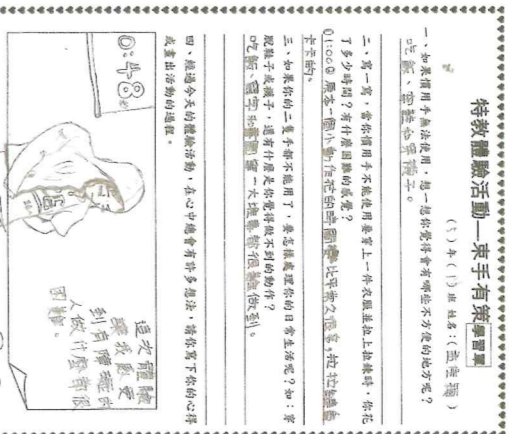 特教體驗活動—束手有策 學習單
(5)年(1)班 姓名:( )
一、如果慣用手無法使用,想一想你覺得會有哪些不方便的地方呢?
吃飯、 和穿襪子。
二、寫一寫,當你慣用手不能使用要穿上一件衣服並拉上拉鍊時,你花
了多少時間?有什麼困難的感覺?
01:00 原本一個小動作花的時間 比平常久很多,拉拉鍊
卡卡的。
三、如果你的二隻手都不能用了,要怎樣處理你的日常生活呢?如:穿
脫鞋子或襪子,還有什麼是你覺得做不到的動作?
吃飯、寫字和 一大堆事都很難做到。
四、經過今天的體驗活動,在心中總會有許多想法,請你寫下你的心得
或畫出活動的過程。
0:48
這次體驗
讓我感受
到有障礙的
人做什麼都很
困難。